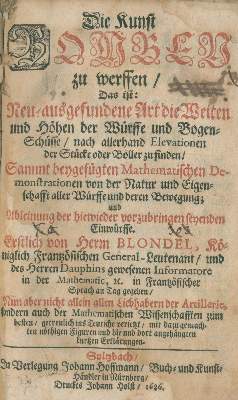 Die Kunst
BOMBEN
zu werffen/
Das ist:
Neu-ausgefundene Art die Weiten
und Höhen der Würffe und Bogen-
Schüsse/ nach allerhand Elevationen
der Stücke oder Böller zu finden/
Sammt beygefügten Mathematischen De-
monstrationen von der Natur und Eigen-
schafft aller Würffe und deren Bewegung;
und
Ableinung der hierwieder vorzubringen seyenden
Einwürffe.
Erstlich von Herrn BLONDEL, Kö-
niglich Französischen General-Leutenant/ und
des Herren Dauphins gewesenen Informatore
in der Mathematic, &c. in Französischer
Sprach an Tag gegeben/
Nun aber nicht allein allen Liebhabern der Artillerie,
sondern auch der Mathematischen Wissenschafften zum
besten/ getreulich ins Teutsche versetzt/ mit dazu gemach-
ten nöthigen Figuren und hie und dort angehängten
kurtzen Erklärungen.
Sulzbach/
In Verlegung Johann Hoffmann/ Buch- und Kunst-
Händler in Nürnberg/
Druckts Johann Holst/ 1686.